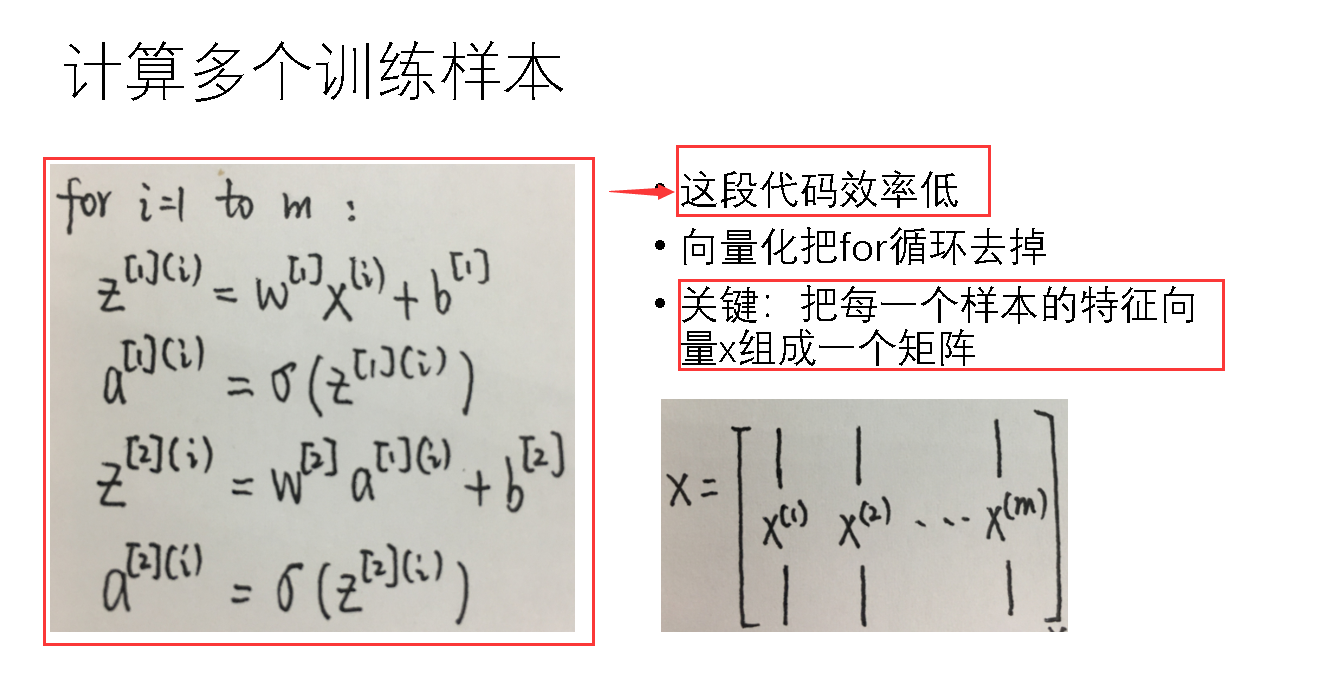 计算多个训练样本
for i=1 to m :
z^{[1](i)} = W^{[1]}x^{(i)} + b^{[1]}
a^{[1](i)} = σ(z^{[1](i)})
z^{[2](i)} = W^{[2]} a^{[1](i)} + b^{[2]}
a^{[2](i)} = σ(z^{[2](i)})
• 这段代码效率低
• 向量化把for循环去掉
• 关键：把每一个样本的特征向
量x组成一个矩阵
X = [ x^{(1)} x^{(2)} ... x^{(m)} ]